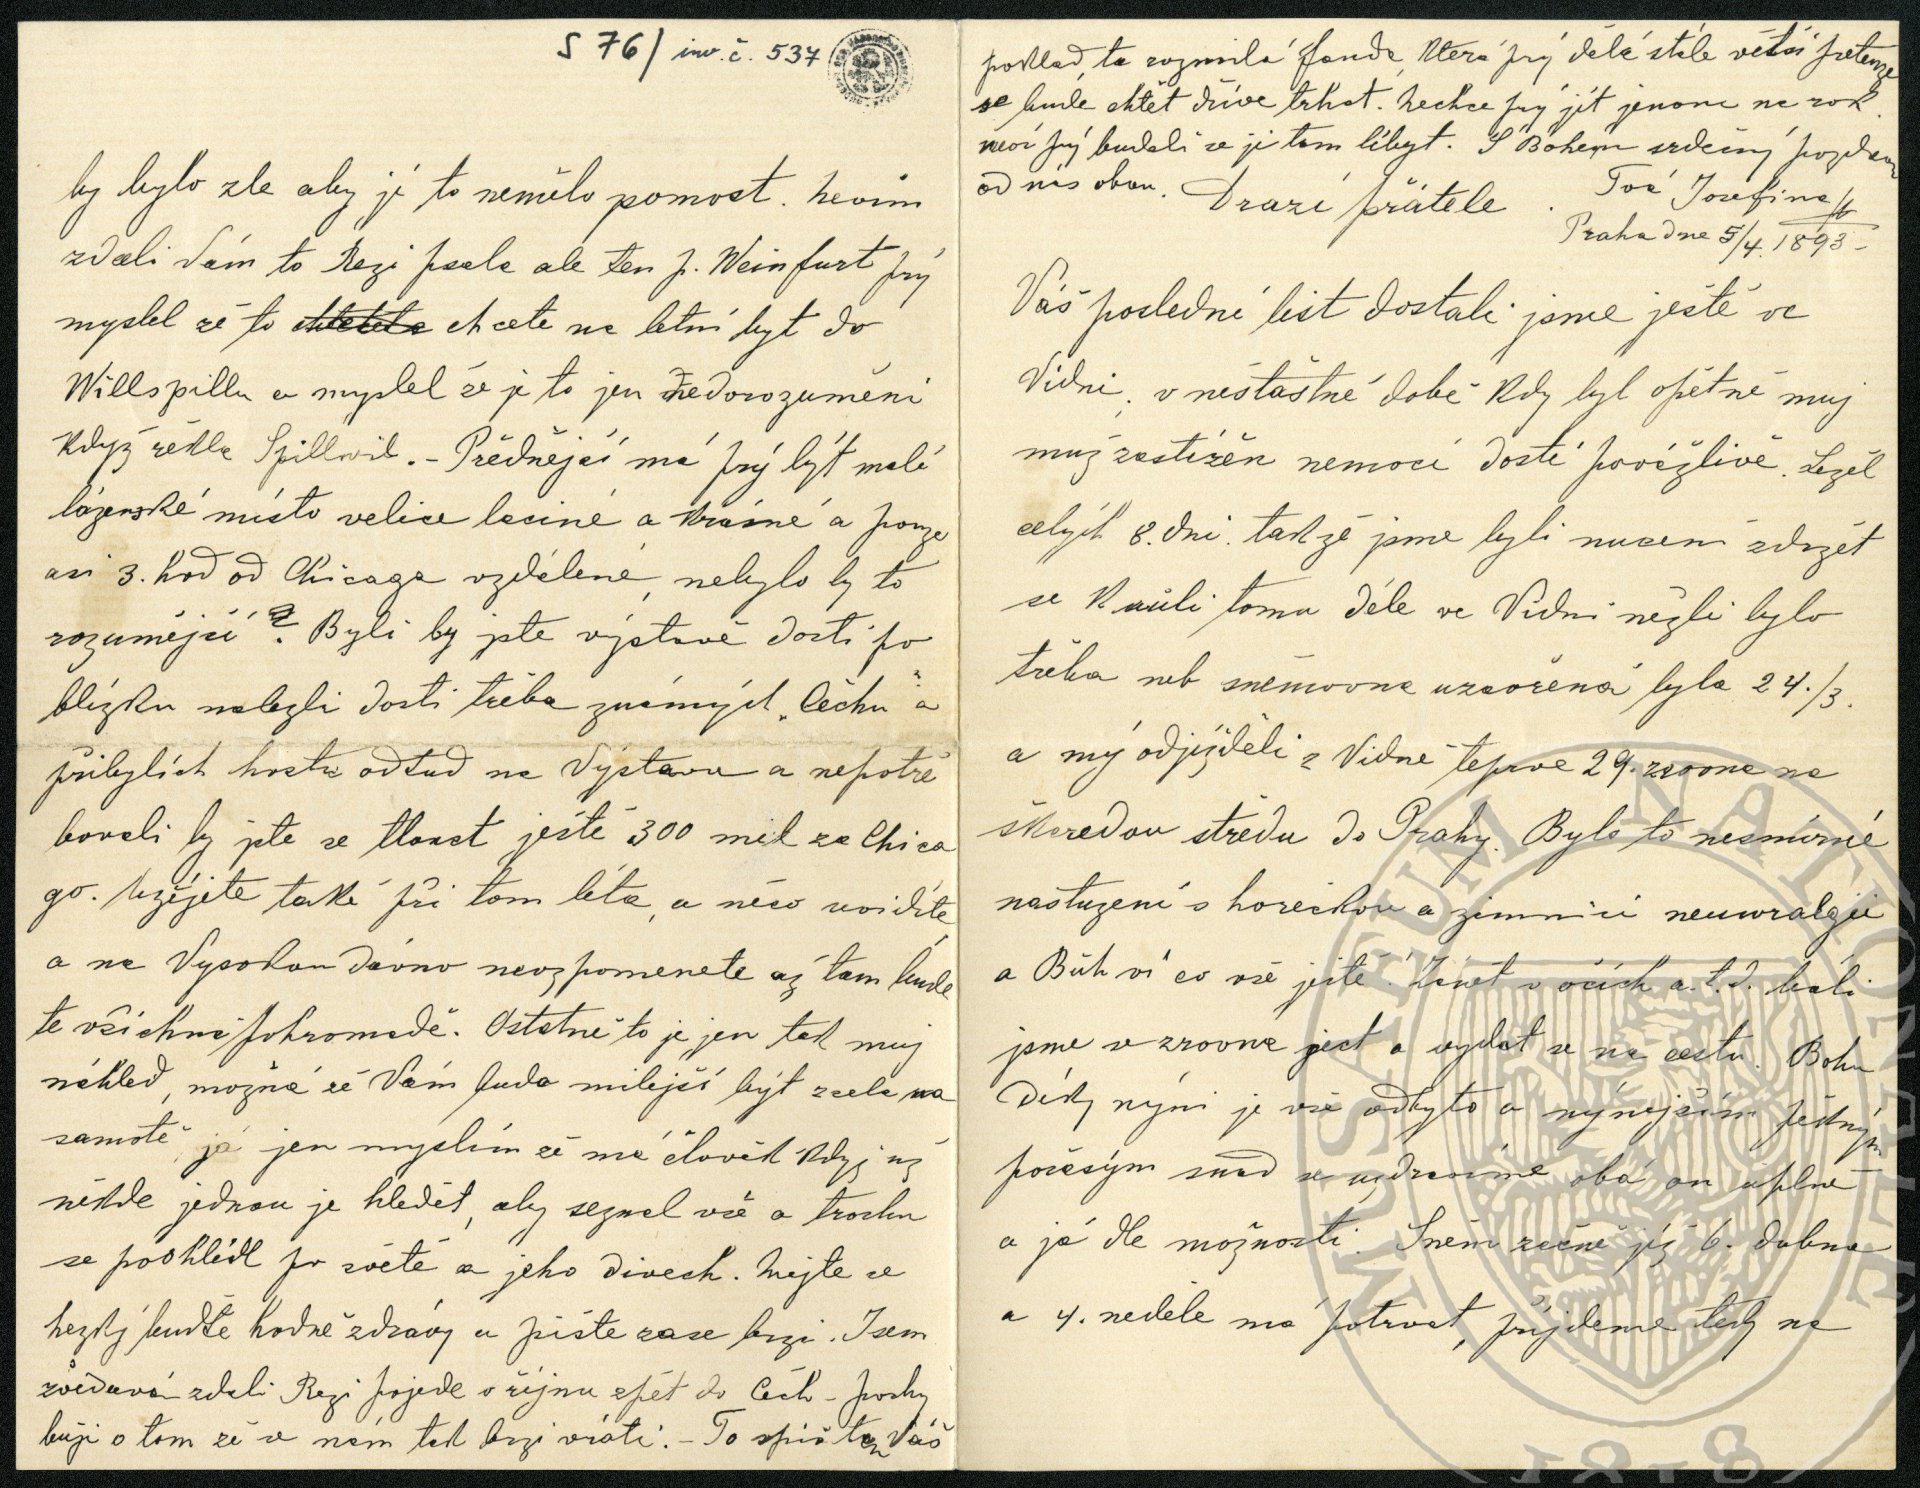 S 76/ inv. č. 537
by bylo zle aby jí to nemělo pomoct. Nevím
zdali Vám to Rezi psala ale ten p. Weinfurt prý
myslel zě to chcete na letní byt do
Willspillu a myslel že je to jen nedorozuměni
když řekla Spillwil. – Předňejší má prý být malé
lázenské místo velice laciné a krásné a pouze
asi 3. hod od Chicaga vzdálené, nebylo by to
rozumějsí? Byli by jste výstavě dosti po
blízku nalezli dosti třeba známých „Čěchu" a
přibylích hostu odtud na Výstavu a nepotře
bovali by jste se tlouct ještě 300 mil za Chica
go. Užějete také při tom léta, a něco uvidíte,
a na Vysokou dávno nevzpomenete až tam bude
te všichni pohromadě. Ostatně to je jen tak muj
náhled, možná zě Vám buda milejší být zcela na
samotě, já jen myslím zě má člověk když už
někde jednou je hledět, aby seznal vše a trochu
se poohlédl po světě a jeho divech. Mějte se
hezky buďte hodně zdrávy a pište zase brzi. Jsem
zvědavá zdali Rezi pojede v říjnu zpět do Čech – pochy
buji o tom zě se nám tak brzi vrátí. – To spíš ten Váš
poklad, ta rozmilá Fanda, která prý dělá stále větší pretenze
se bude chtět dříve trhat. Nechce prý jít jenom na rok.
neví prý budeli se jí tam líbyt. S Bohem srdečný pozdrav
od nás obou. Tvá Josefina
Drazí přátele. Praha dne 5/4. 1893 –
Váš poslední list dostali jsme ještě ve
Vídni, v nešťastné době kdy byl opětně muj
muž zastižěn nemocí dosti povážlivě. Ležěl
celých 8. dni. takžě jsme byli nuceni zdržět
se k vůli tomu déle ve Vídni něžli bylo
třeba neb sněmovna uzavřená byla 24./3.
a mý odjížděli z Vídně teprve 29. zrovna na
škaredou středu do Prahy. Bylo to nesmírné
nastuzení s horečkou a zimnicí neuuralgií
a Bůh ví co vše ještě! Zánět v očích a.t.d. báli
jsme se zrovna ject a vydat se na cestu. Bohu
díky nýni je vše odbyto a nýnejším pěkným
počásým snad se uzdravíme oba on úplně
a já dle možnosti. Sněm začně již 6. dubna
a 4. neděle má potrvat, přijdeme tedy na